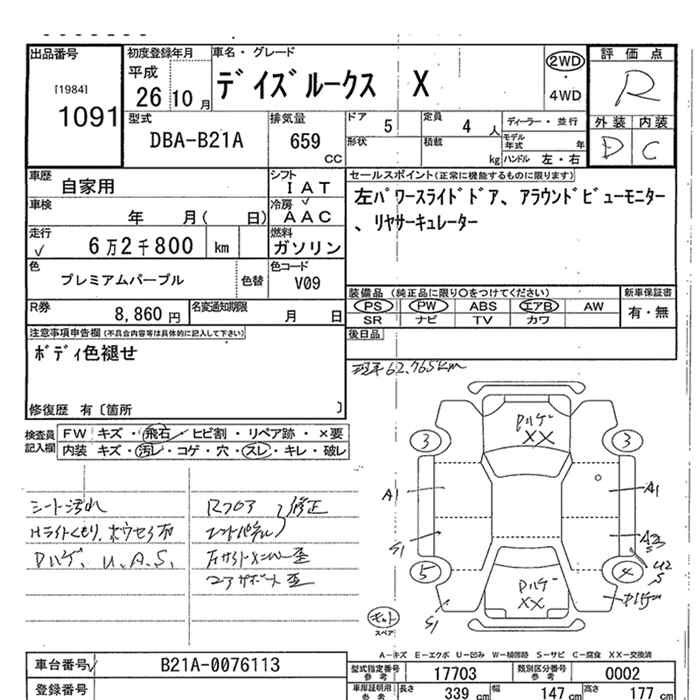 出品番号
[1984]
1091
初度登録年月
平成
26 10月
車名・グレード
デイズルークス X
2WD
・
4WD
評価点
R
外装 内装
D C
型式
DBA-B21A
排気量
659
CC
ドア 5
定員 4 人
ディーラー・並行
形状
積載 kg
モデル年式 年
ハンドル 左・右
車歴
自家用
シフト
IAT
車検
年 月( 日)
冷房
AAC
走行
6万2千800 km
燃料
ガソリン
色
プレミアムパープル
色替
色コード
V09
R券
8,860円
名変通知期限
月 日
セールスポイント(正常に機能するものに限ります)
左パワースライドドア、アラウンドビューモニター
、リヤサーキュレーター
装備品 (純正品に限り〇をつけてください)
PS PW ABS エアB AW
SR ナビ TV カワ
新車保証書
有・無
後日品
注意事項申告欄(不具合内容等は具体的に記入して下さい)
ボディ色褪せ
修復歴 有〔箇所 〕
検査員
記入欄
FW キズ・飛石・ヒビ割・リペア跡・×要
内装 キズ・汚レ・コゲ・穴・スレ・キレ・破レ
62,765km
シート汚れ
Hライトくもり、
Dハゲ、U.A.S.
Rフロア
修正
コアサポート歪
Dハゲ
XX
3
3
A1
A1
S1
A3
U2
S
5
4
Dハゲ
XX
S1
Dハゲ
スペア
A-キズ E-エクボ U-凹み W-補修跡 S-サビ C-腐食 XX-交換済
車台番号
B21A-0076113
登録番号
型式指定番号
参考
17703
類別区分番号
参考
0002
車庫証明用
参考
長さ 339 cm
幅 147 cm
高さ 177 cm